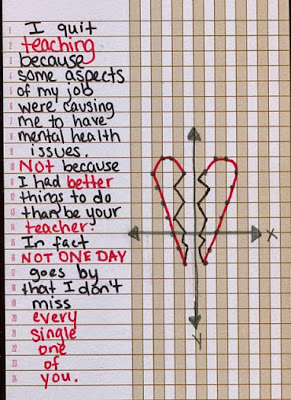 I quit
teaching
because
some aspects
of my job
were causing
me to have
mental health
issues.
Not because
I had better
things to do
than be your
teacher.
In fact
NOT ONE DAY
goes by
that I don't
miss
every
single
one
of
you.
X
Y